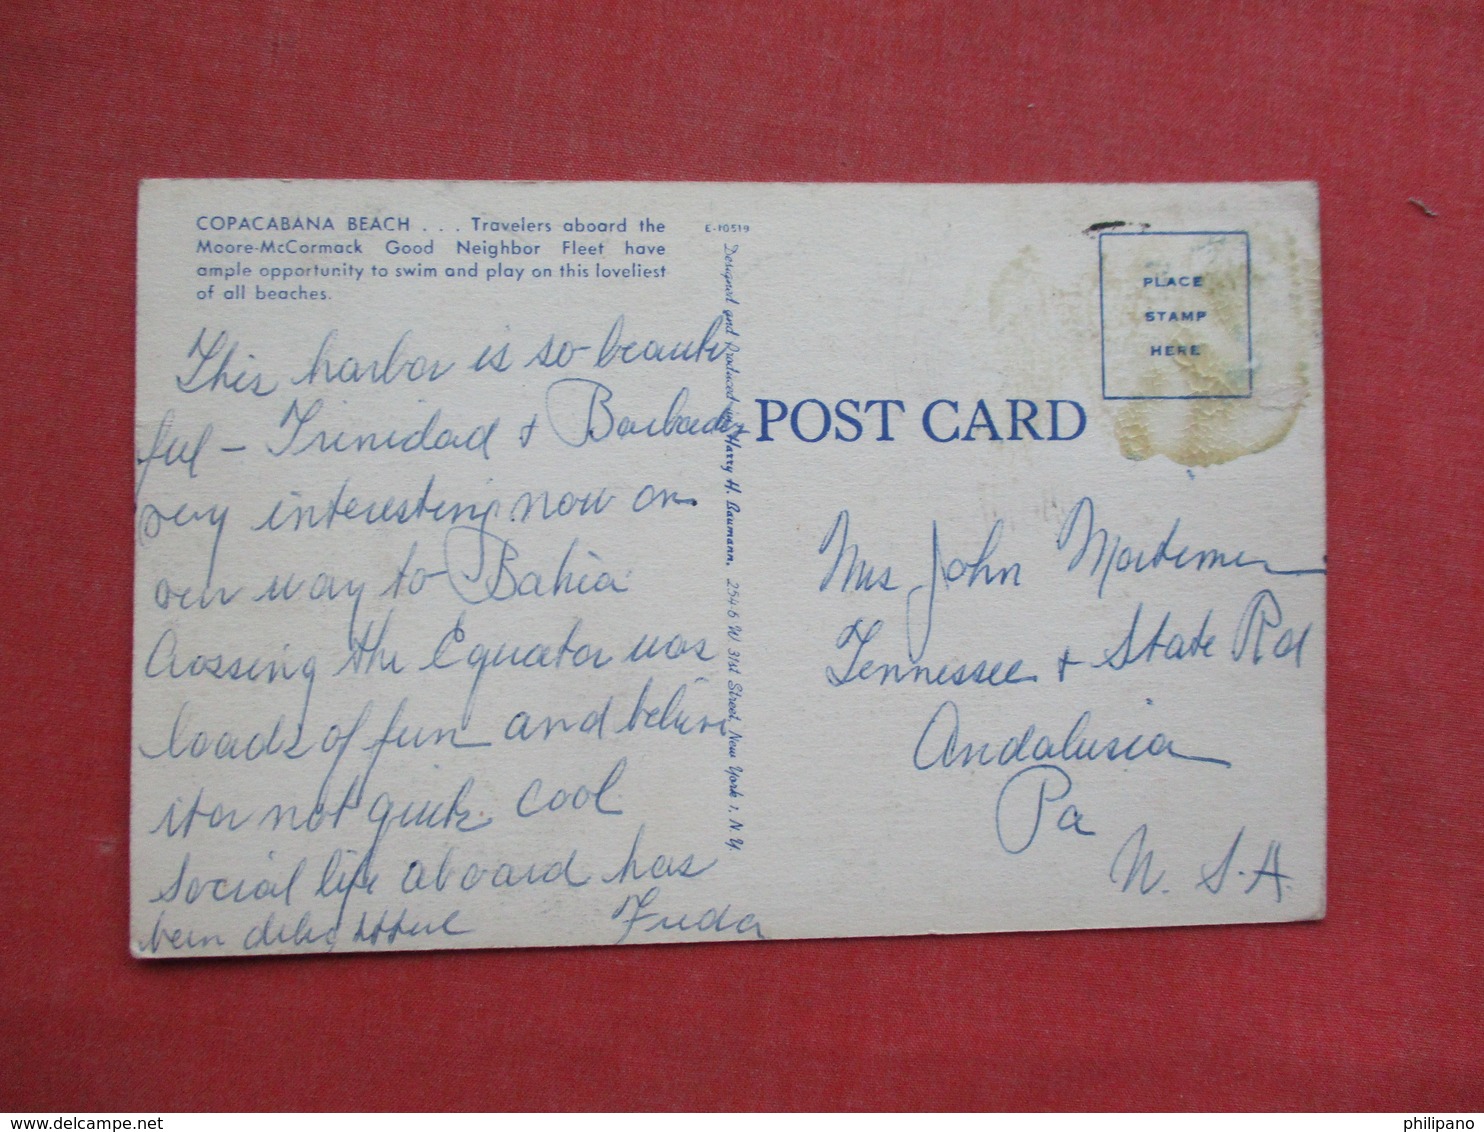 COPACABANA BEACH . . . Travelers aboard the
Moore-McCormack Good Neighbor Fleet have
ample opportunity to swim and play on this loveliest
of all beaches.
This harbor is so beauti
ful - Trinidad + Barbados
very interesting now on
our way to Bahia
Crossing the Equator was
loads of fun and believe
it or not quite cool
Social life aboard has
been delightful Freda
E-10519
Designed and Produced by Harry H. Baumann, 254-6 W 31st Street, New York 1, N.Y.
PLACE
STAMP
HERE
POST CARD
Mrs John Mortimer
Tennessee + State Rd
Andalusia
Pa
U. S. A.
philipano
delcampe.net